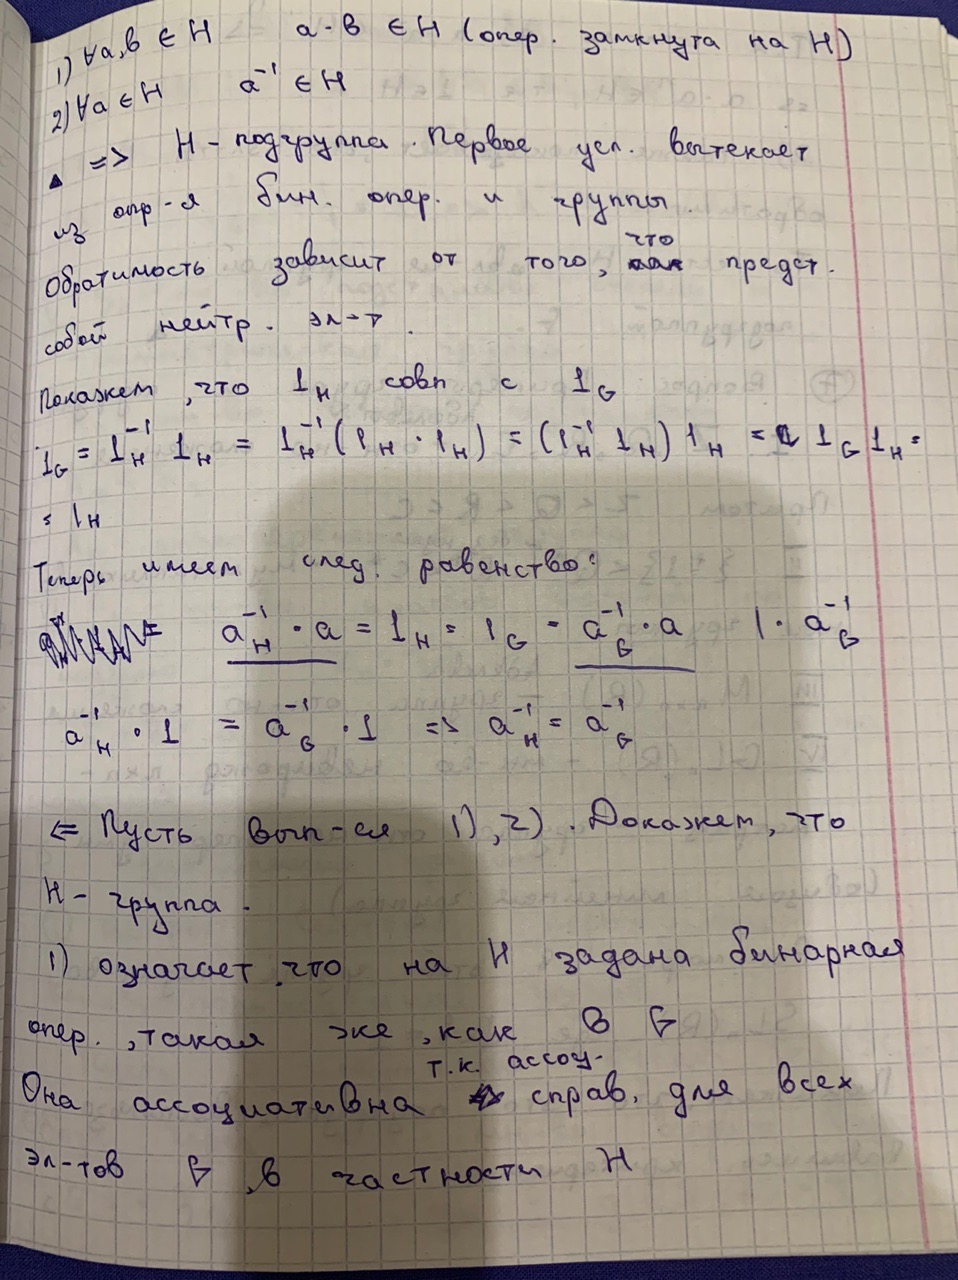 1) ∀a,b ∈ H a·b ∈ H (опер. замкнута на H)
2) ∀a ∈ H a⁻¹ ∈ H
▲ => H - подгруппа. Первое усл. вытекает
из опр-я бин. опер. и группы.
Обратимость зависит от того, что предст.
собой нейтр. эл-т.
Покажем, что 1_H совп с 1_G
1_G = 1_H⁻¹ 1_H = 1_H⁻¹(1_H · 1_H) = (1_H⁻¹ 1_H) 1_H = 1_G 1_H =
= 1_H
Теперь имеем след. равенство:
a_H⁻¹ · a = 1_H = 1_G = a_G⁻¹ · a | · a_G⁻¹
a_H⁻¹ · 1 = a_G⁻¹ · 1 => a_H⁻¹ = a_G⁻¹
<= Пусть вып-ся 1), 2). Докажем, что
H - группа.
1) означает, что на H задана бинарная
опер., такая же, как в G
т.к. ассоц.
Она ассоциативна справ. для всех
эл-тов G, в частности H